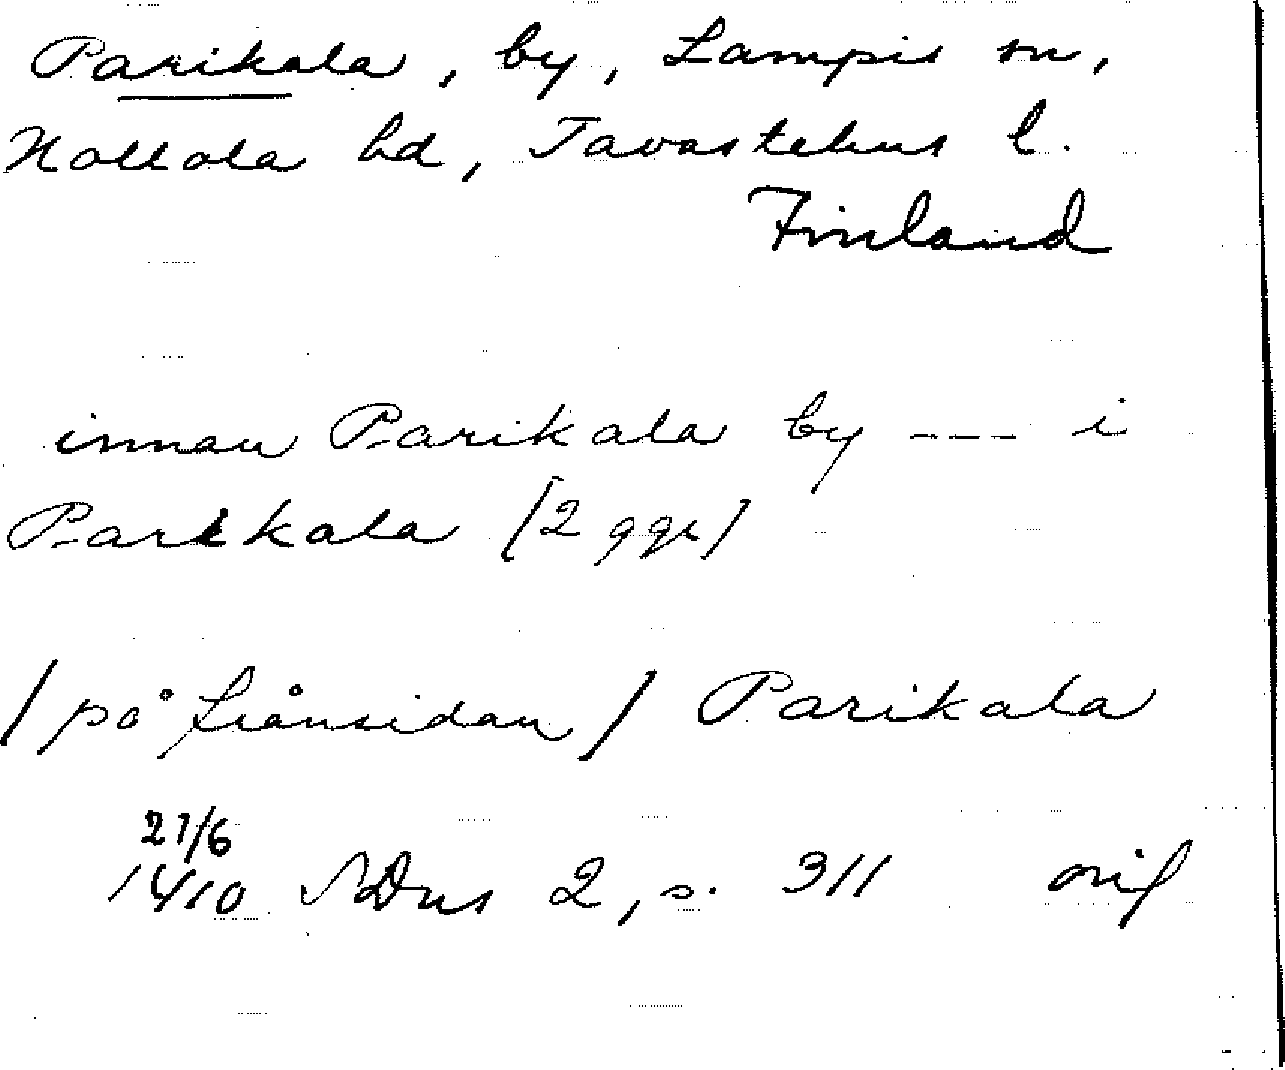 Parikala, by, Lampis sn,
Hollola hd, Tavastehus l.
Finland
innan Parikala by --- i
Parikala [2 ggr]
/på frånsidan/ Parikala
27/6
1410 SDns 2, s. 311 orig